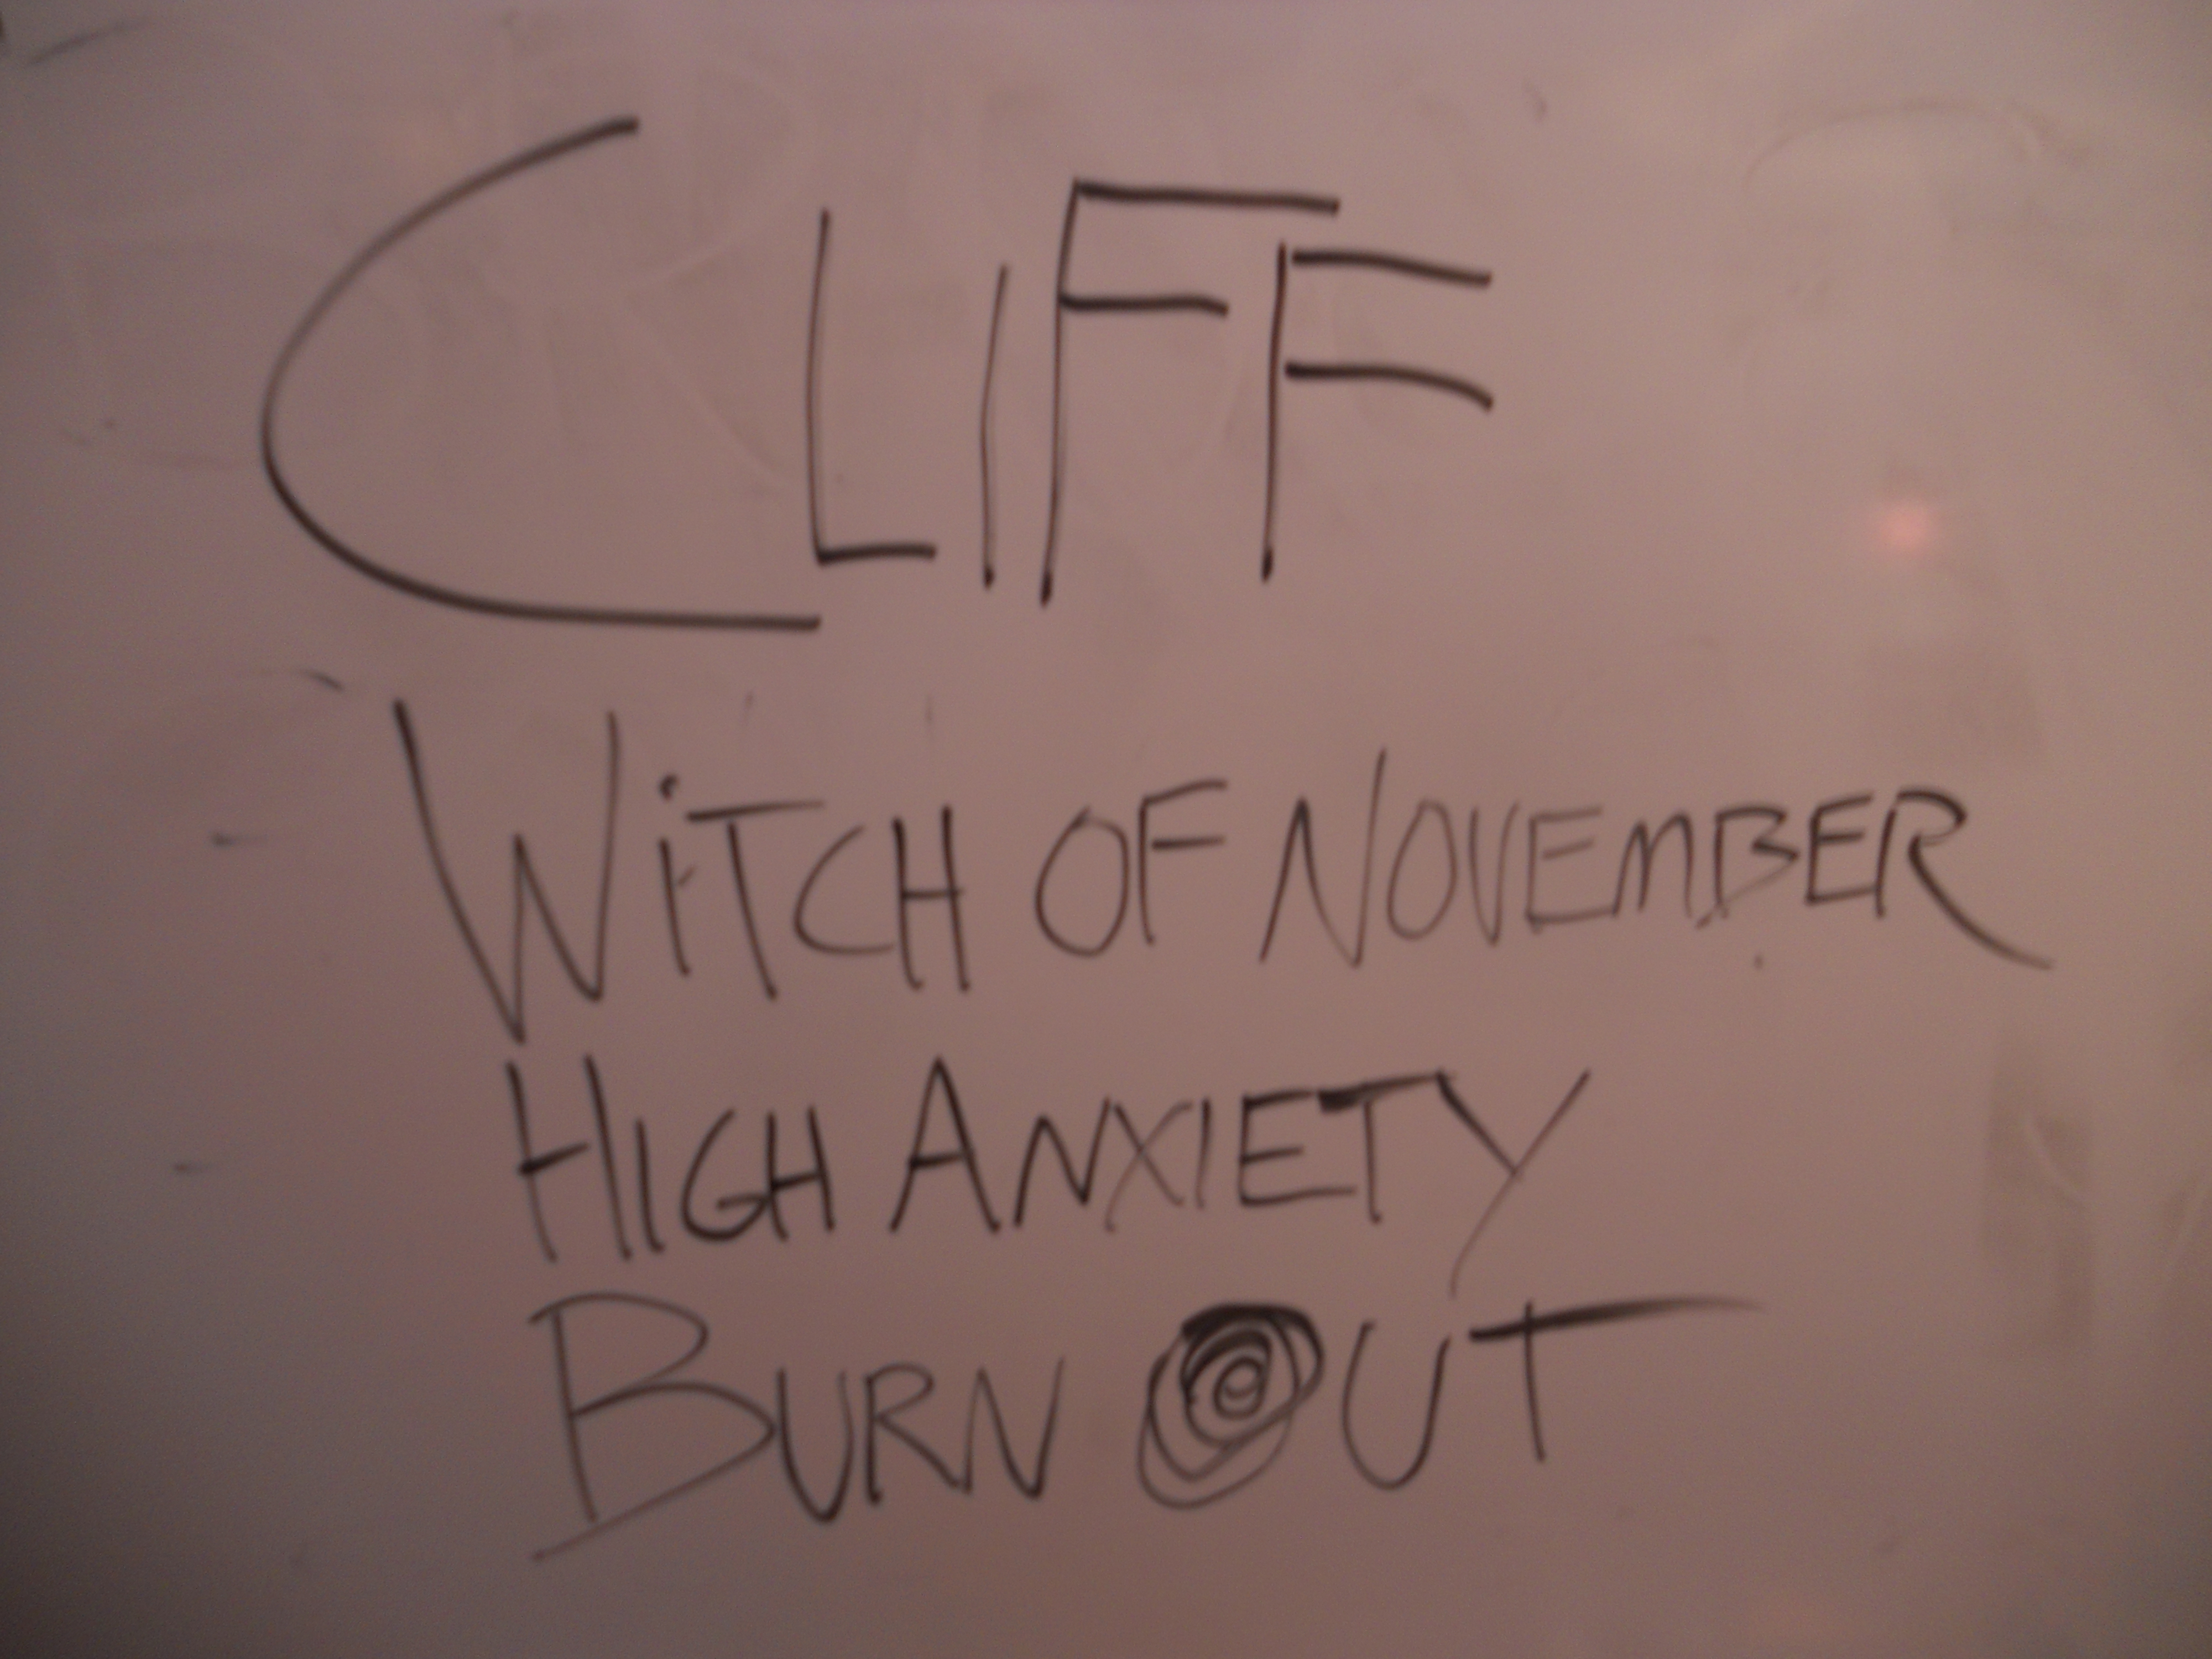 CLIFF
WiTCH OF NOVEMBER
HIGH ANXIETY
BURN OUT